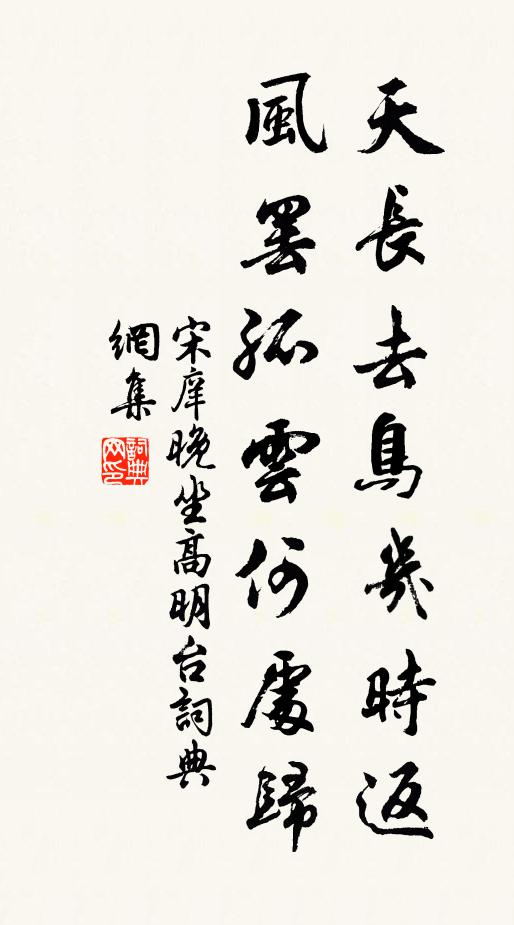 天長去鳥幾時返
風罷孤雲何處歸
宋庠晚坐高明台詞典
網集
詞典網印